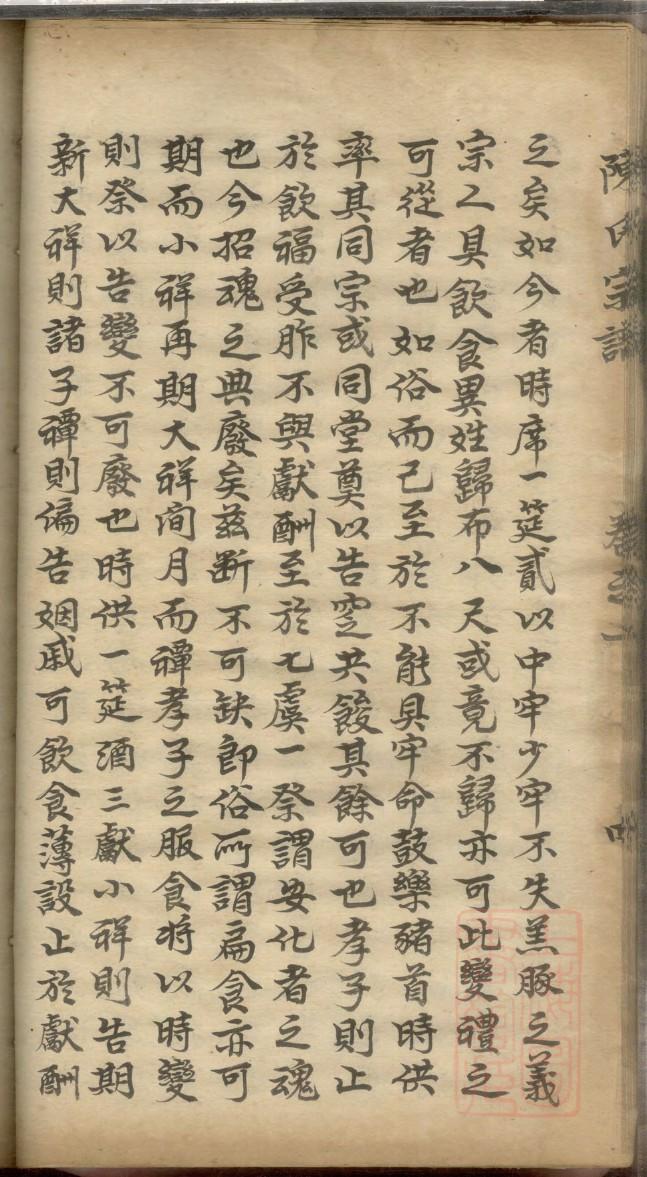 陳氏宗譜
之矣如今者時席一筵貳以中牢少牢不失羔豚之義
宗人具飲食異姓歸布八尺或竟不歸亦可此變禮之
可從者也如俗而已至於不能具牢命鼓樂豬首時供
率其同宗或同堂奠以告窆共餕其餘可也孝子則止
於飲福受胙不與獻酬至於七虞一祭謂安化者之魂
也今招魂之典廢矣茲斷不可缺即俗所謂扁食亦可
期而小祥再期大祥間月而禫孝子之服食將以時變
則祭以告變不可廢也時供一筵酒三獻小祥則告期
新大祥則諸子禫則徧告姻戚可飲食薄設止於獻酬